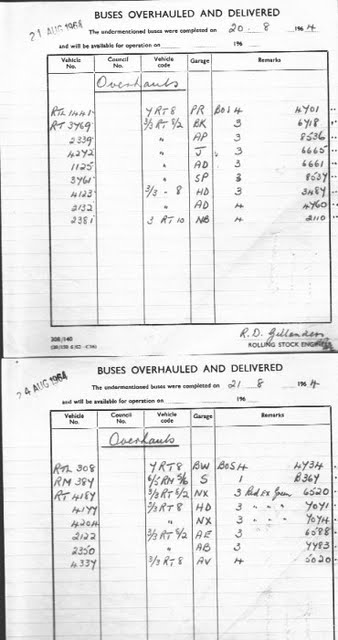 BUSES OVERHAULED AND DELIVERED
21 AUG 1964
The undermentioned buses were completed on 20 . 8 196 4
and will be available for operation on 196
Vehicle No. Council No. Vehicle code Garage Remarks
Overhauls
RTL 1441 7 RT8 PR BOS 4 4701
RT 3769 3/3 RT 8/2 BK 3 6418
2339 " AP 3 8536
4272 " J 3 6665
1125 " AD 3 6661
3761 " SP 3 8537
4123 3/3 - 8 HD 3 3487
2132 " AD 4 4760
2381 3 RT 10 NB 4 2110
R.D. Gillenders
ROLLING STOCK ENGINEER
308/140
BUSES OVERHAULED AND DELIVERED
24 AUG 1964
The undermentioned buses were completed on 21 . 8 196 4
and will be available for operation on 196
Vehicle No. Council No. Vehicle code Garage Remarks
Overhauls
RTL 308 7 RT8 BW BOS 4 4734
RM 387 6/5 RM 5/6 S 1 B367
RT 4187 3/3 RT 8/2 NX 3 Red Ex Green 6520
4177 3/3 RT8 HD 3 " " " 7071
4204 " NX 3 " " " 7074
2122 3/3 RT 8/2 AE 3 6588
2350 " AB 3 7783
4337 3/3 RT 8 AV 4 5020